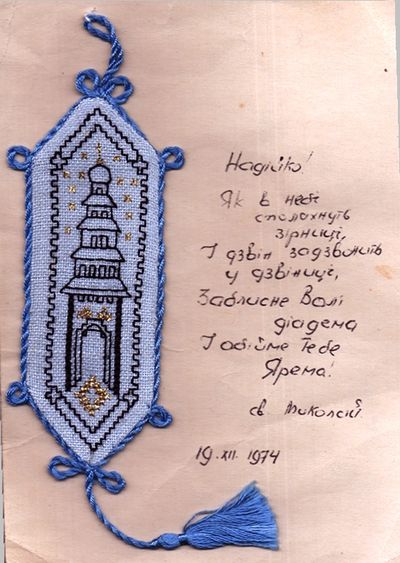 Надійко!
Як в небі
спалахнуть
зірниці,
І дзвін задзвонить
у дзвіниці,
Заблисне Волі
діадема
І обійме Тебе
Ярема!
св. Миколай.
19.XII. 1974